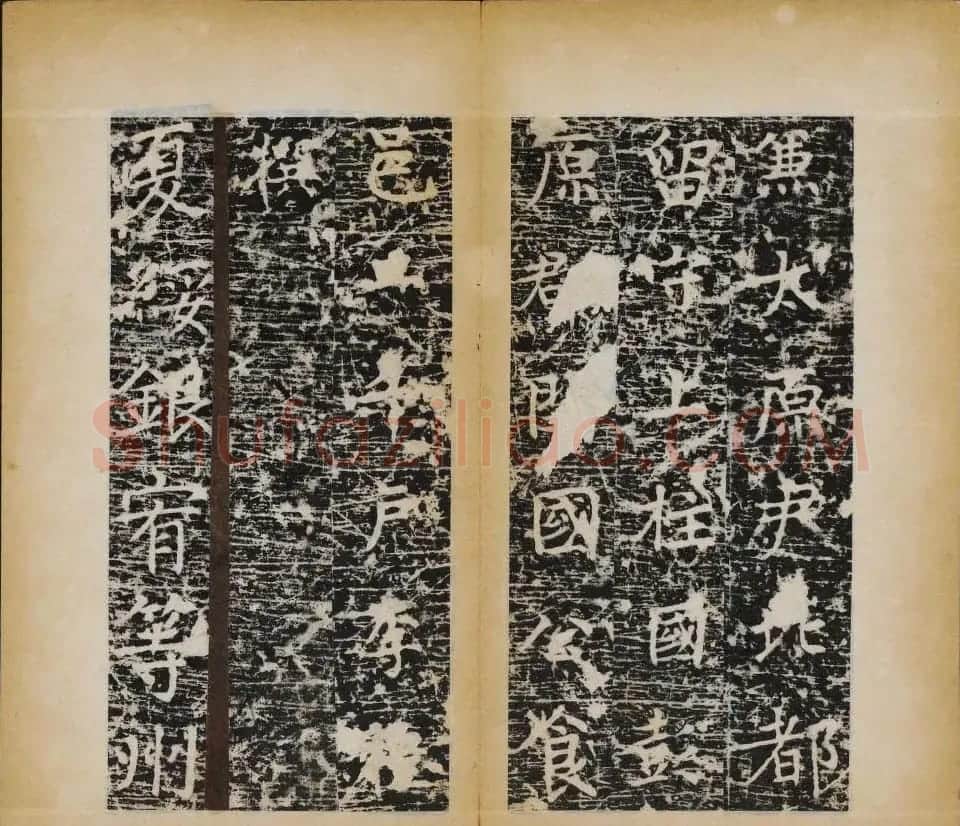 兼太原尹北都
留守上柱國彭
原郡開國公食
邑千戶李
撰
夏綏銀宥等州
Shufaziliao.COM